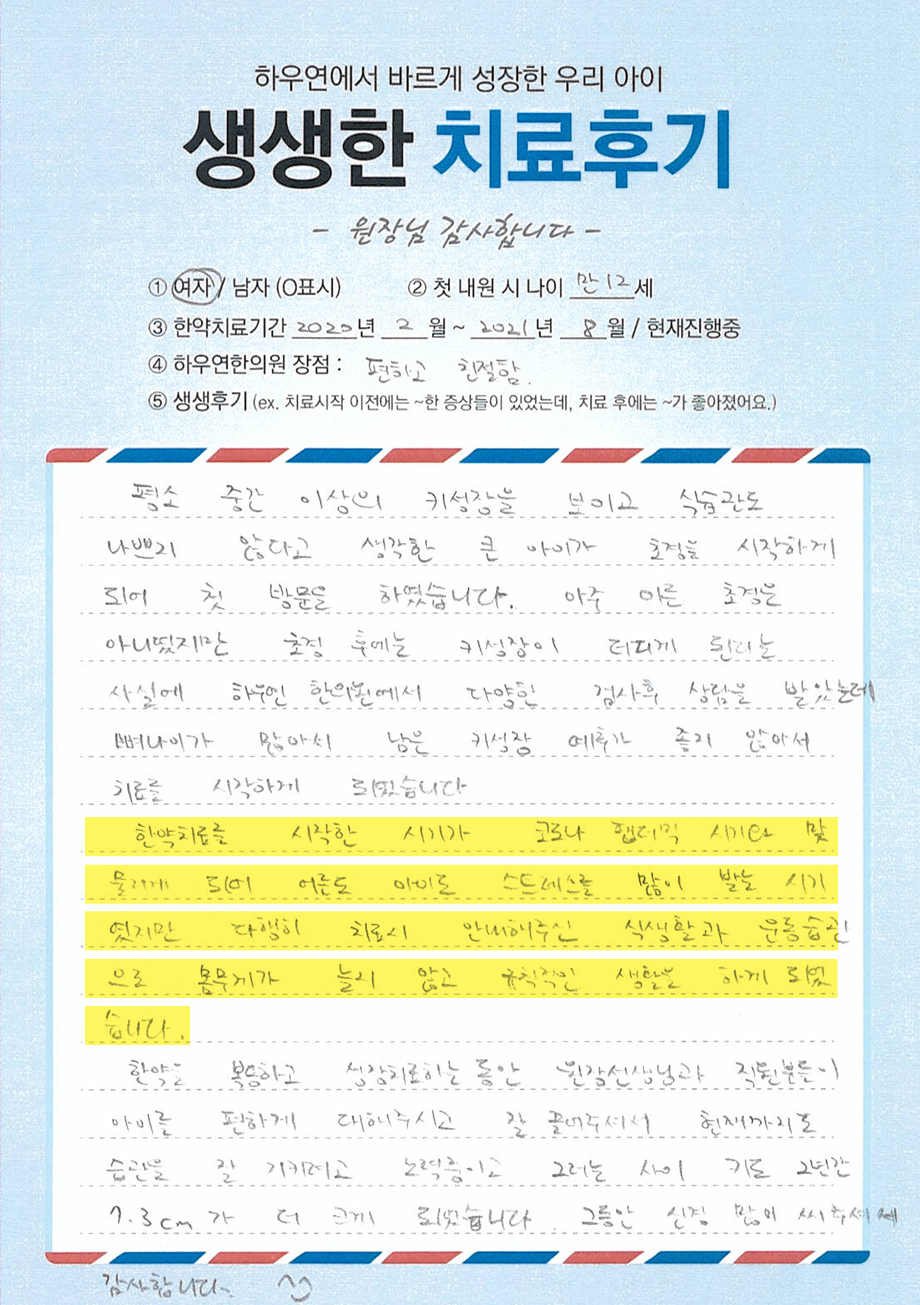 하우연에서 바르게 성장한 우리 아이
생생한 치료후기
- 원장님 감사합니다 -
① 여자 / 남자 (O표시) ② 첫 내원 시 나이 만 12 세
③ 한약치료기간 2020 년 2 월 ~ 2021 년 8 월 / 현재진행중
④ 하우연한의원 장점 : 편하고 친절함.
⑤ 생생후기 (ex. 치료시작 이전에는 ~한 증상들이 있었는데, 치료 후에는 ~가 좋아졌어요.)
평소 중간 이상의 키성장을 보이고 식습관도
나쁘지 않다고 생각한 큰 아이가 초경을 시작하게
되어 첫 방문을 하였습니다. 아주 이른 초경은
아니었지만 초경 후에는 키성장이 더디게 된다는
사실에 하우연 한의원에서 다양한 검사후 상담을 받았는데
뼈나이가 많아서 남은 키성장 예후가 좋지 않아서
치료를 시작하게 되었습니다
한약치료를 시작한 시기가 코로나 팬데믹 시기와 맞
물리게 되어 어른도 아이도 스트레스를 많이 받는 시기
였지만 다행히 치료시 안내해주신 식생활과 운동습관
으로 몸무게가 늘지 않고 규칙적인 생활을 하게 되었
습니다.
한약을 복용하고 성장치료하는 동안 원장선생님과 직원분들이
아이를 편하게 대해주시고 잘 끌어주셔서 현재까지도
습관을 잘 지키려고 노력중이고 그러는 사이 키도 2년간
7.3cm가 더 크게 되었습니다. 그동안 신경 많이 써주셔서
감사합니다.